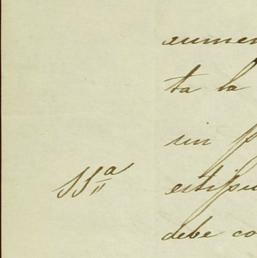 aumen
ta la
sin p
11ª
estipu
debe co